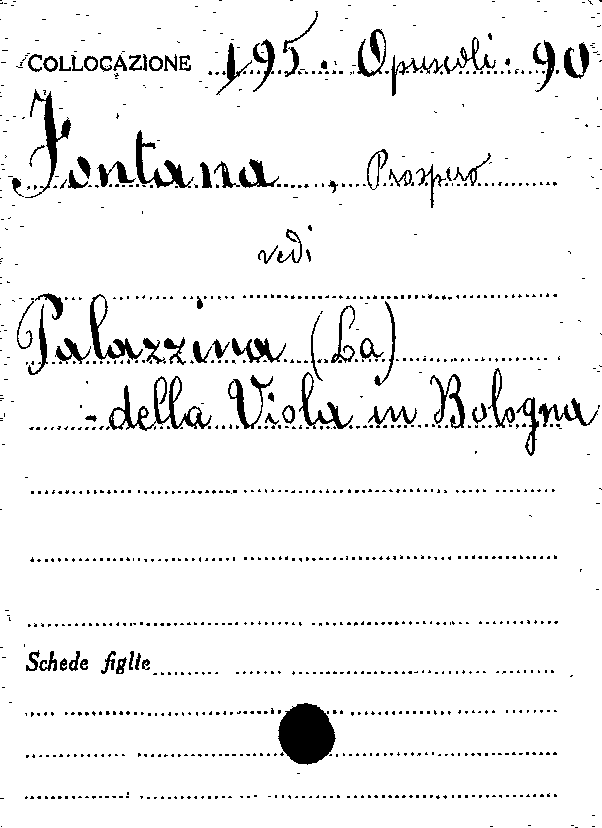 COLLOCAZIONE 195. Opuscoli. 90
Fontana, Prospero
vedi
Palazzina (La)
- della Viola in Bologna
Schede figlie